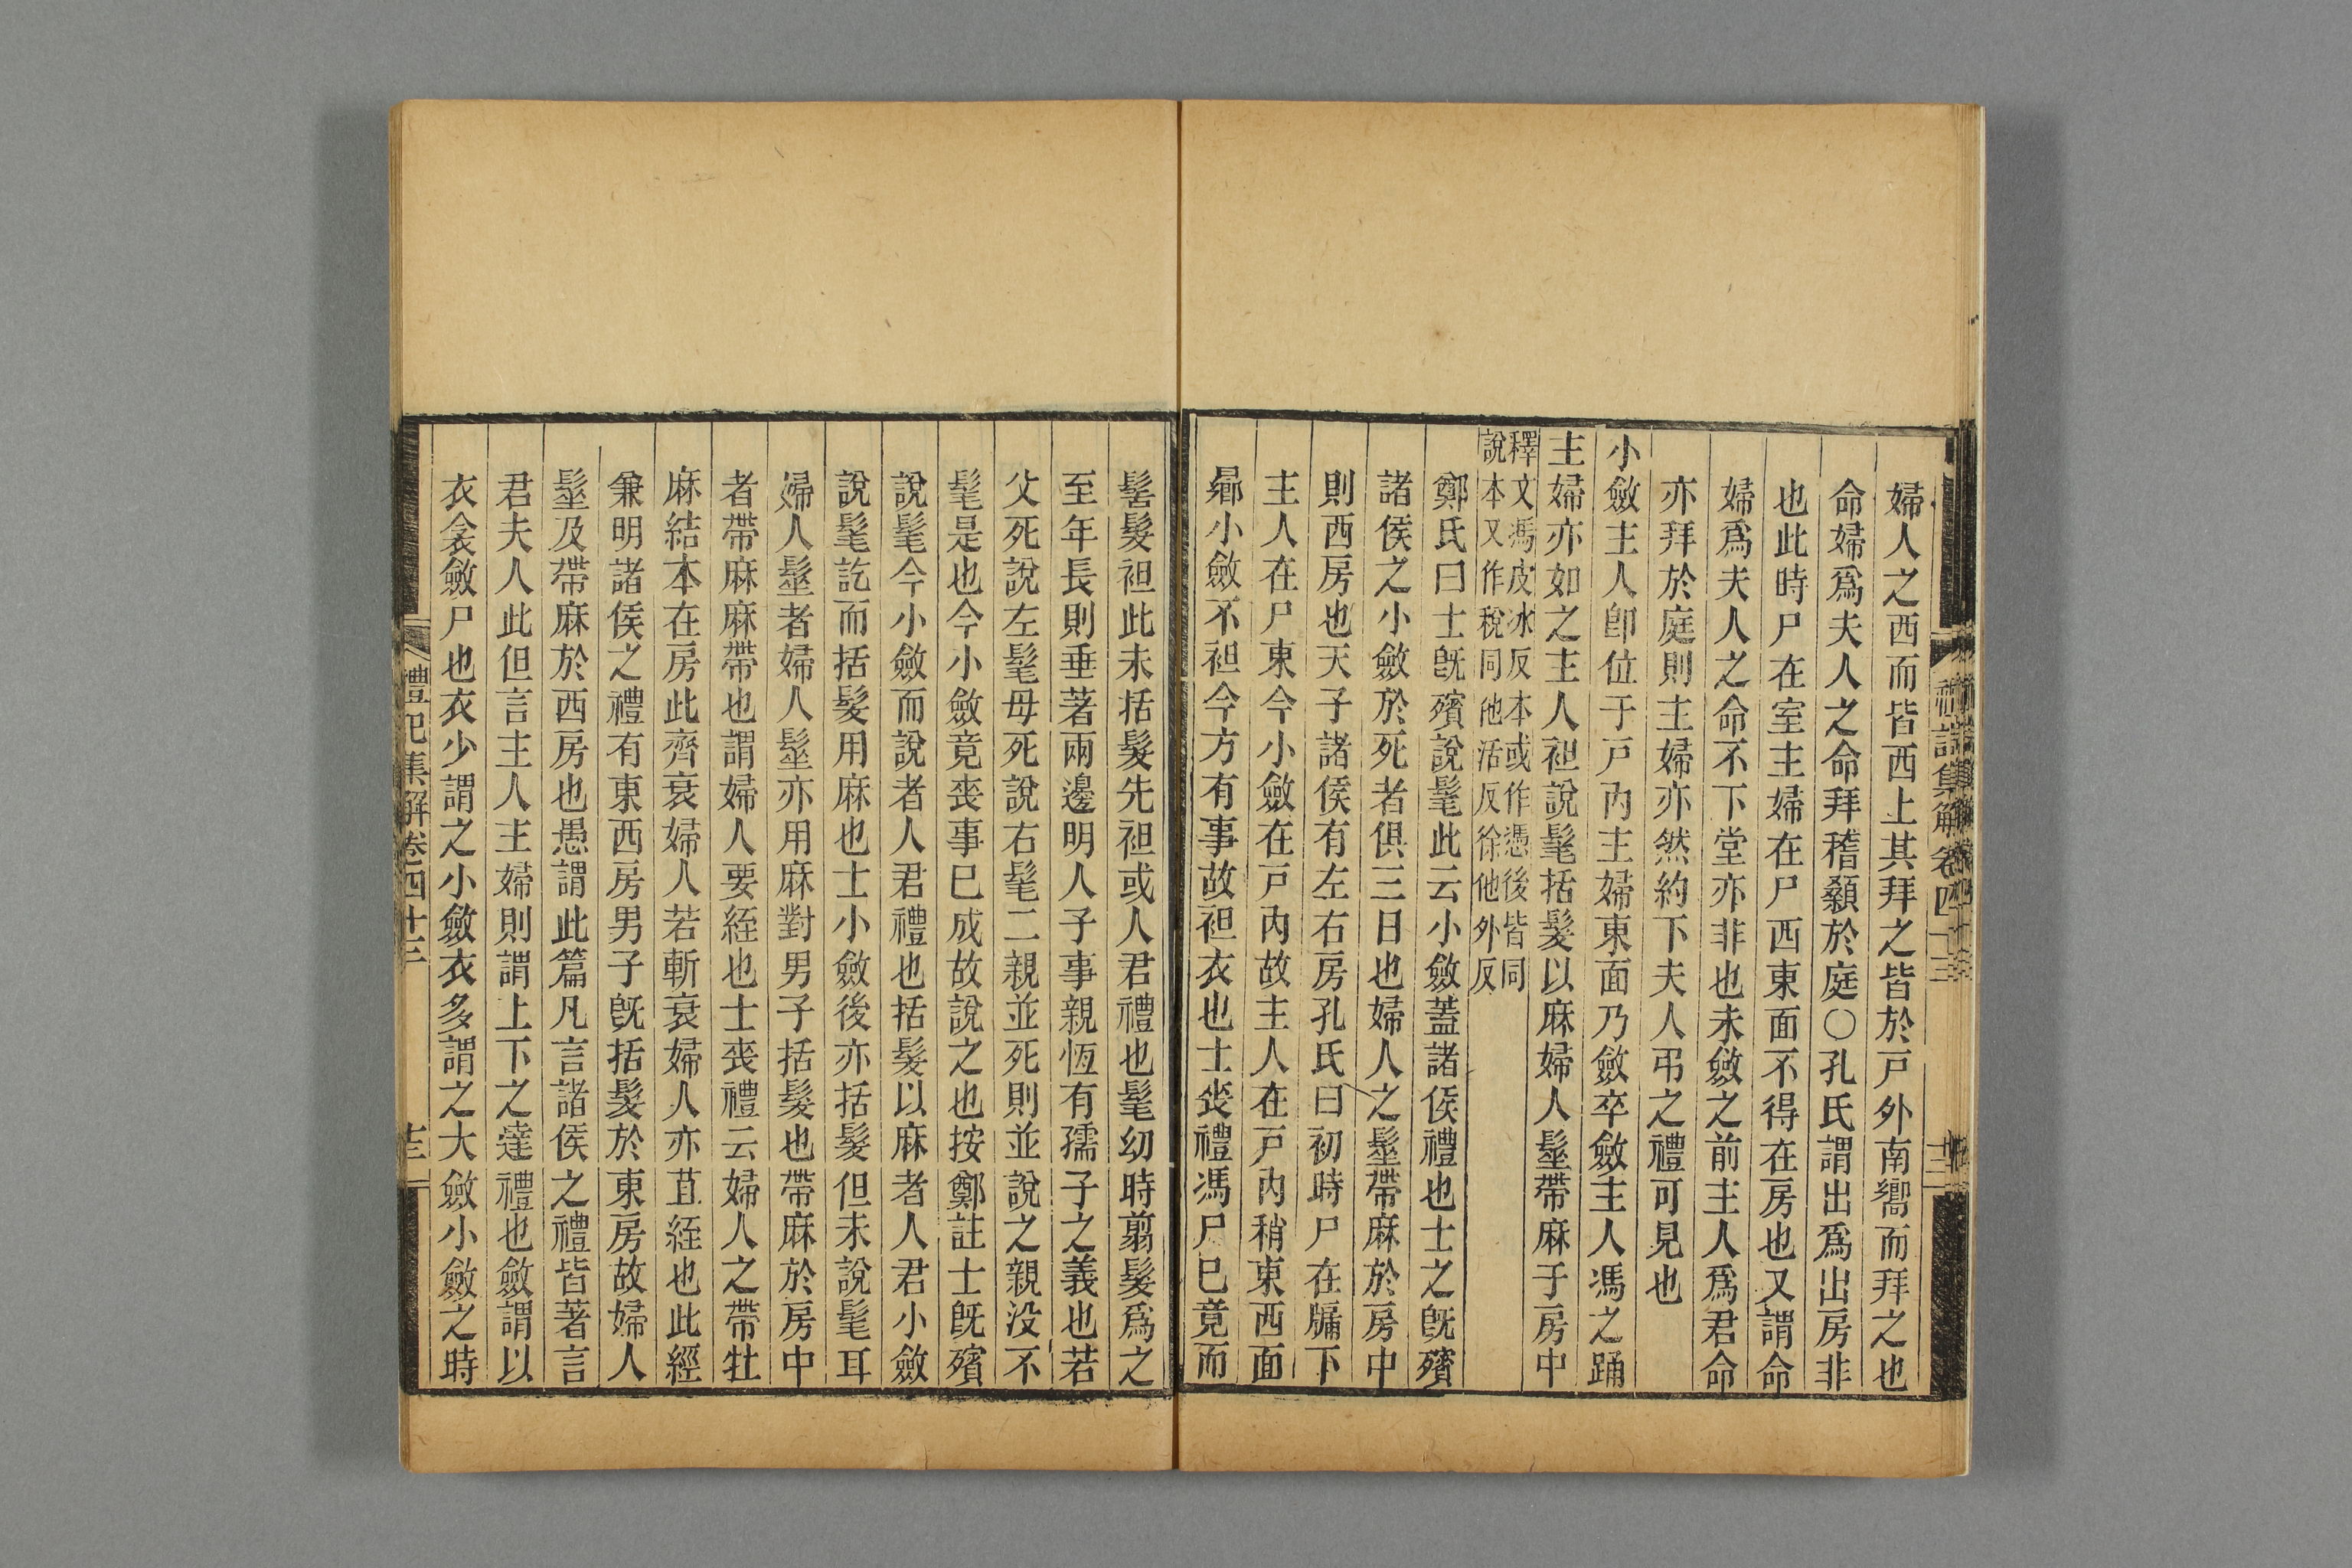 婦人之西而皆西上其拜之皆於戸外南嚮而拜之也
命婦爲夫人之命拜稽顙於庭○孔氏謂出爲出房非
也此時尸在室主婦在尸西東面不得在房也又謂命
婦爲夫人之命不下堂亦非也未斂之前主人爲君命
亦拜於庭則主婦亦然約下夫人弔之禮可見也
小斂主人卽位于戸內主婦東面乃斂卒斂主人馮之踊
主婦亦如之主人袒說髦括髮以麻婦人髽帶麻于房中
釋文馮皮冰反本或作憑後皆同
說本又作稅同他活反徐他外反
鄭氏曰士旣殯說髦此云小斂蓋諸侯禮也士之旣殯
諸侯之小斂於死者俱三日也婦人之髽帶麻於房中
則西房也天子諸侯有左右房孔氏曰初時尸在牖下
主人在尸東今小斂在戸內故主人在戸內稍東西面
曏小斂不袒今方有事故袒衣也士喪禮馮尸已竟而
髺髮袒此未括髮先袒或人君禮也髦幼時翦髮爲之
至年長則垂著兩邊明人子事親恆有孺子之義也若
父死說左髦母死說右髦二親並死則並說之親没不
髦是也今小斂竟喪事已成故說之也按鄭註士旣殯
說髦今小斂而說者人君禮也括髮以麻者人君小斂
說髦訖而括髮用麻也士小斂後亦括髮但未說髦耳
婦人髽者婦人髽亦用麻對男子括髮也帶麻於房中
者帶麻麻帶也謂婦人要絰也士喪禮云婦人之帶牡
麻結本在房此齊衰婦人若斬衰婦人亦苴絰也此經
兼明諸侯之禮有東西房男子旣括髮於東房故婦人
髽及帶麻於西房也愚謂此篇凡言諸侯之禮皆著言
君夫人此但言主人主婦則謂上下之達禮也斂謂以
衣衾斂尸也衣少謂之小斂衣多謂之大斂小斂之時
禮記集解卷四十三